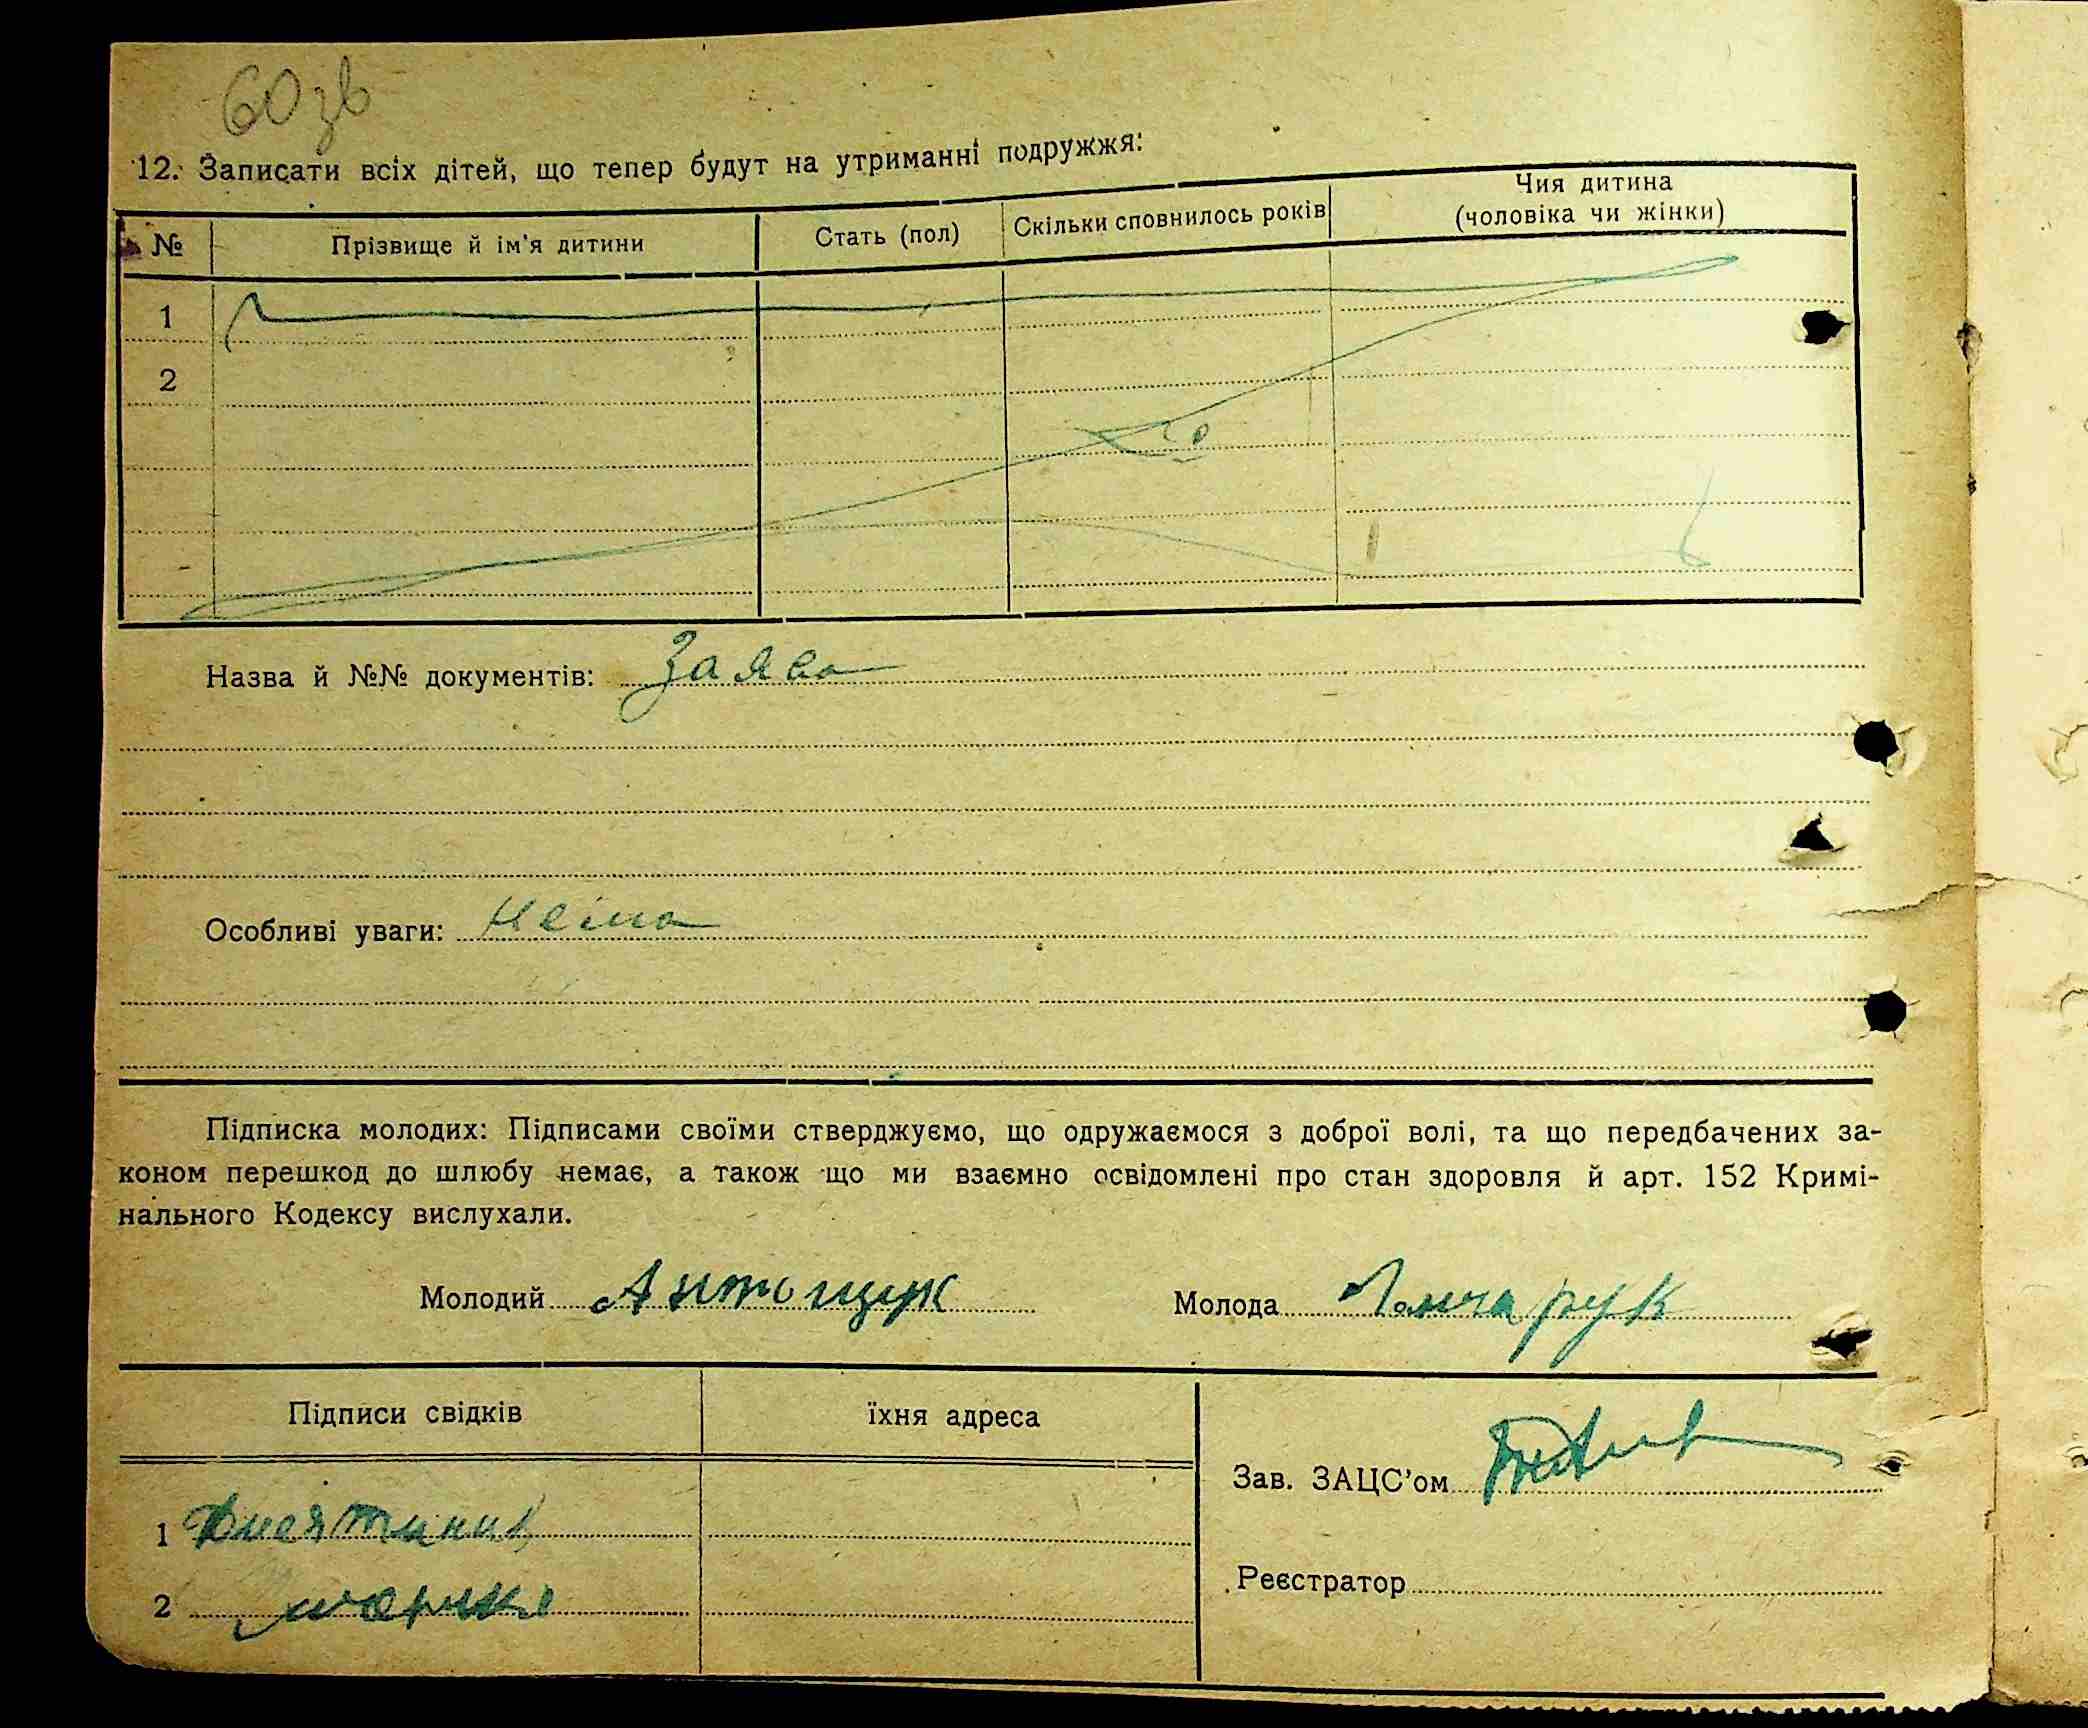 60 зв
12. Записати всіх дітей, що тепер будут на утриманні подружжя:
№ Прізвище й ім'я дитини Стать (пол) Скільки сповнилось років Чия дитина (чоловіка чи жінки)
1
2
Назва й №№ документів: Заява
Особливі уваги: неіма
Підписка молодих: Підписами своїми стверджуємо, що одружаємося з доброї волі, та що передбачених за-
коном перешкод до шлюбу немає, а також що ми взаємно освідомлені про стан здоровля й арт. 152 Кримі-
нального Кодексу вислухали.
Молодий Антощук Молода Гончарук
Підписи свідків їхня адреса
Зав. ЗАЦС'ом
1
Реєстратор
2